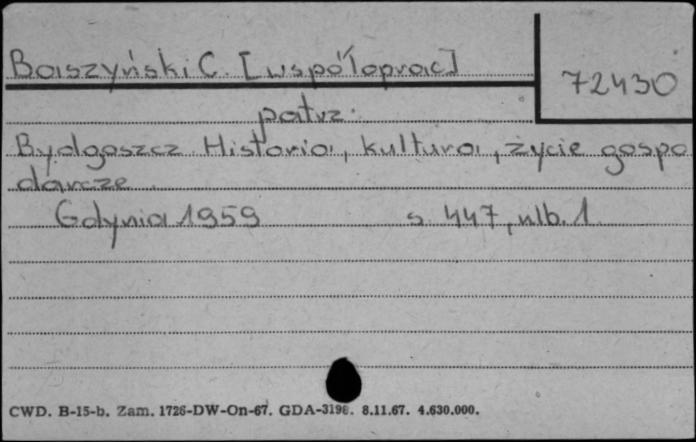 Baszyński C. [współoprac]
72430
patrz:
Bydgoszcz Historia, kultura, życie gospo
darcze
Gdynia 1959 s. 447, nlb. 1
CWD. B-15-b. Zam. 1726-DW-On-67. GDA-3198. 8.11.67. 4.630.000.